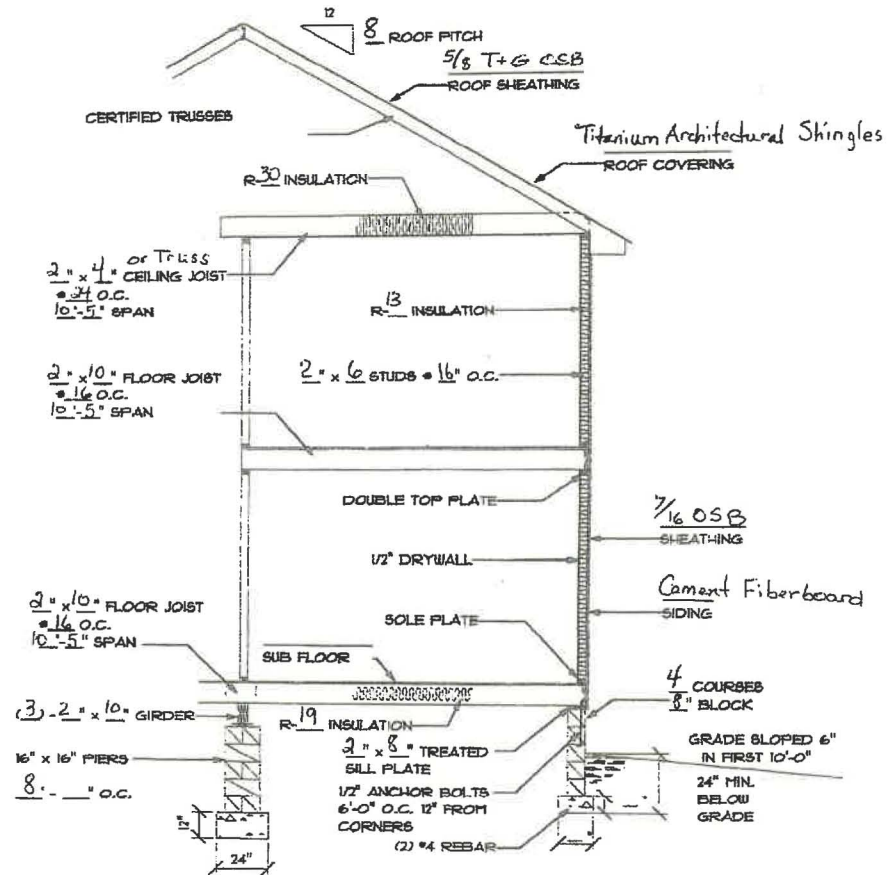 12
8 ROOF PITCH
5/8 T+G OSB
ROOF SHEATHING
CERTIFIED TRUSSES
Titanium Architectural Shingles
ROOF COVERING
R-30 INSULATION
or Truss
2" x 4" CEILING JOIST
@ 24 O.C.
10'-5" SPAN
R-13 INSULATION
2" x 10" FLOOR JOIST
@ 16 O.C.
10'-5" SPAN
2" x 6 STUDS @ 16" O.C.
DOUBLE TOP PLATE
7/16 OSB
SHEATHING
1/2" DRYWALL
Cement Fiberboard
SIDING
2" x 10" FLOOR JOIST
@ 16 O.C.
10'-5" SPAN
SOLE PLATE
SUB FLOOR
4 COURSES
8" BLOCK
(3) - 2" x 10" GIRDER
R-19 INSULATION
2" x 8" TREATED
SILL PLATE
GRADE SLOPED 6"
IN FIRST 10'-0"
16" x 16" PIERS
8'-__" O.C.
1/2" ANCHOR BOLTS
6'-0" O.C. 12" FROM
CORNERS
24" MIN.
BELOW
GRADE
12"
(2) #4 REBAR
24"